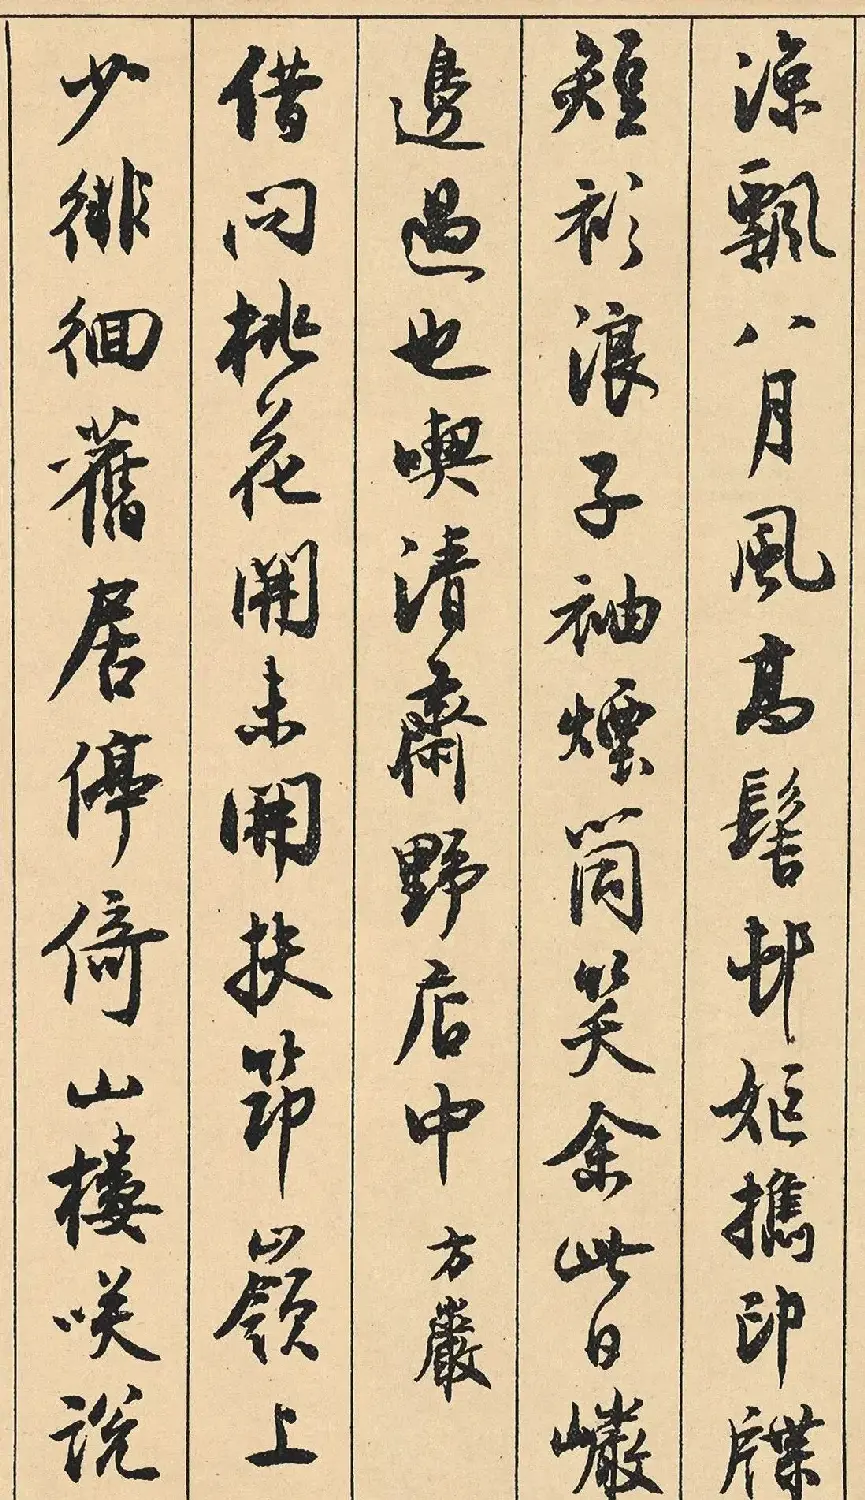 涼飄八月風高髻邨姬攜印牒
短衫浪子袖煙筒笑余此日巖
邊過也喫清齋野店中 方巖
借問桃花開未開扶筇嶺上
少徘徊舊居停倚山樓笑說